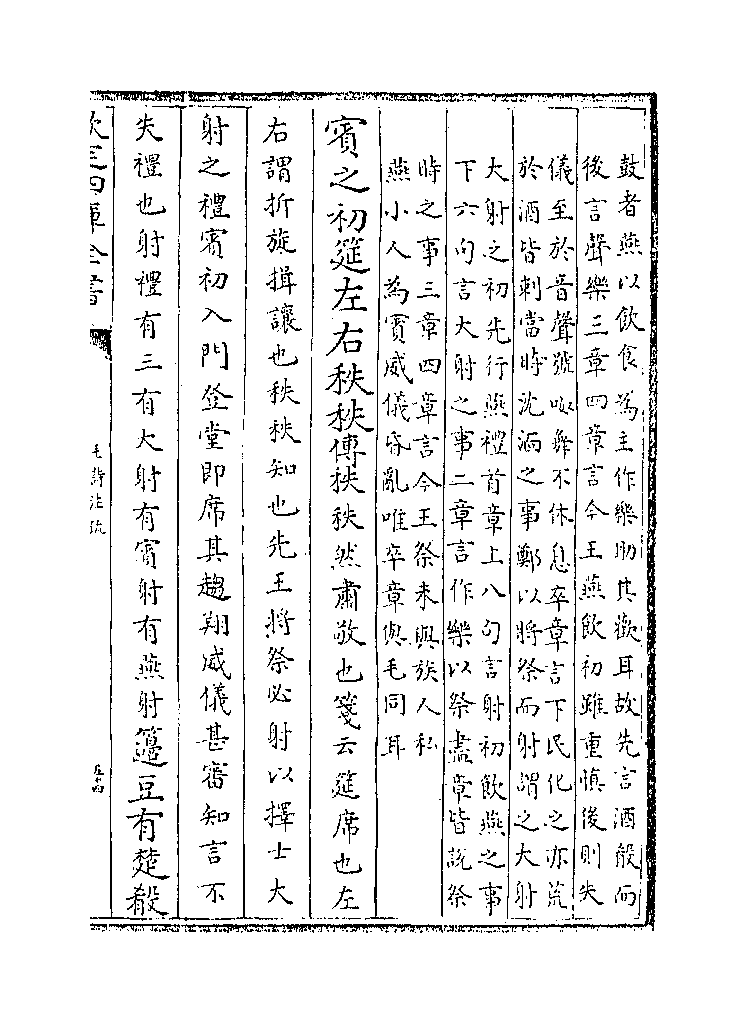 鼓者燕以飲食為主作樂助其歡耳故先言酒殽而
後言聲樂三章四章言今王燕飲初雖重慎後則失
儀至於音聲號呶舞不休息卒章言下民化之亦荒
於酒皆刺當時沈湎之事鄭以將祭而射謂之大射
大射之初先行燕禮首章上八句言射初飲燕之事
下六句言大射之事二章言作樂以祭盡章皆說祭
時之事三章四章言今王祭末與族人私
燕小人為賓威儀昏亂唯卒章與毛同耳
賓之初筵左右秩秩傳秩秩然肅敬也箋云筵席也左
右謂折旋揖讓也秩秩知也先王將祭必射以擇士大
射之禮賓初入門登堂即席其趨翔威儀甚審知言不
失禮也射禮有三有大射有賓射有燕射籩豆有楚殽
欽定四庫全書
毛詩注疏
五十四